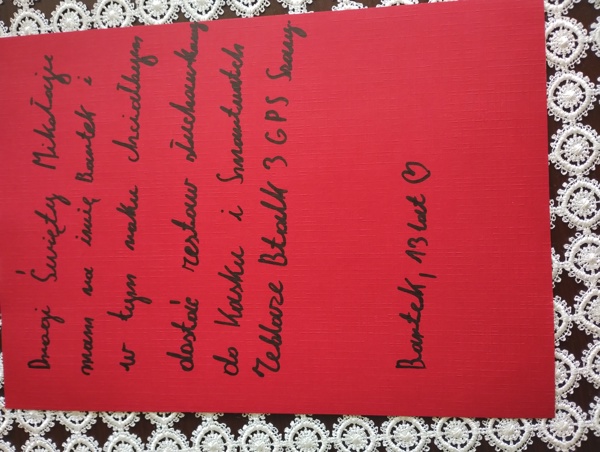 Drogi Święty Mikołaju
mam na imię Bartek i
w tym roku chciałbym
dostać zestaw słuchawkowy
do Kasku i Smartwatch
Zeblaze Btalk 3 GPS Szary
Bartek, 13 lat ♡